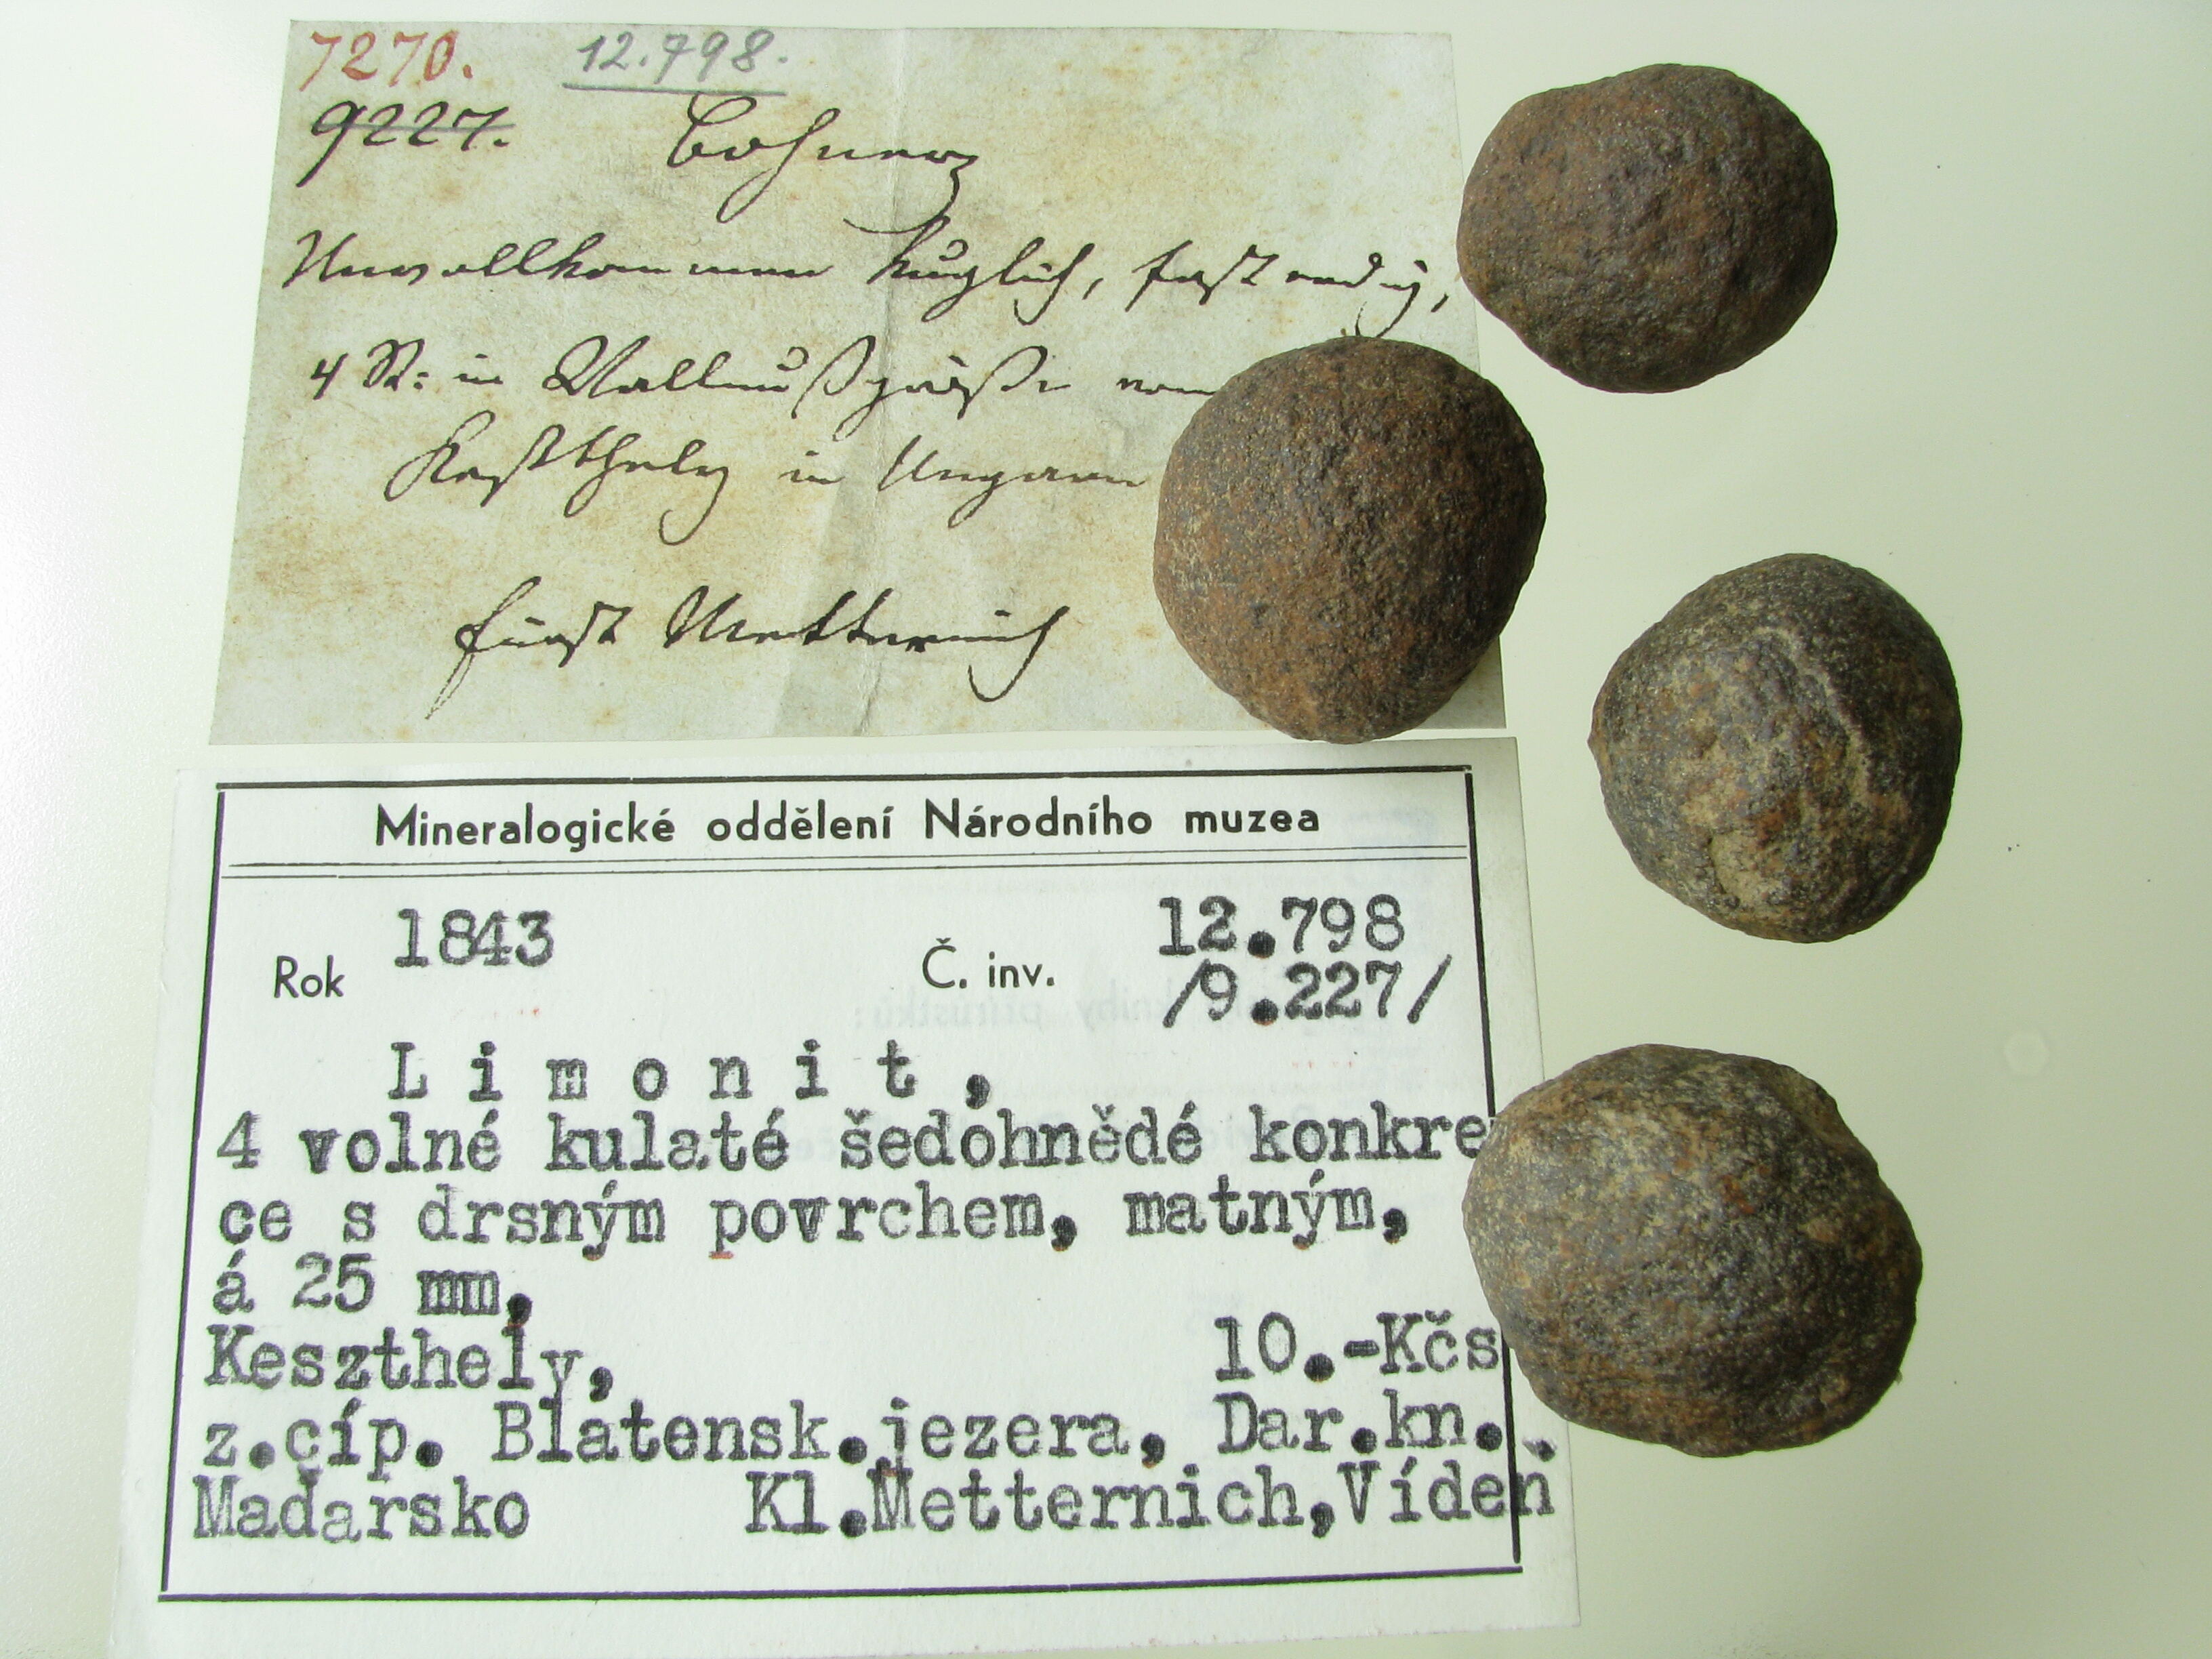 7270. 12.798.
9227. Bohnerz
Unvollkommen kuglich, fast
4 St: in Wallnußgröße von
Keszthely in Ungarn
Fürst Metternich
Mineralogické oddělení Národního muzea
Rok 1843 Č. inv. 12.798
/9.227/
Limonit,
4 volné kulaté šedohnědé konkre
ce s drsným povrchem, matným,
á 25 mm,
Keszthely, 10.-Kčs
z.cíp. Blatensk.jezera, Dar.kn.
Maďarsko Kl.Metternich,Vídeň